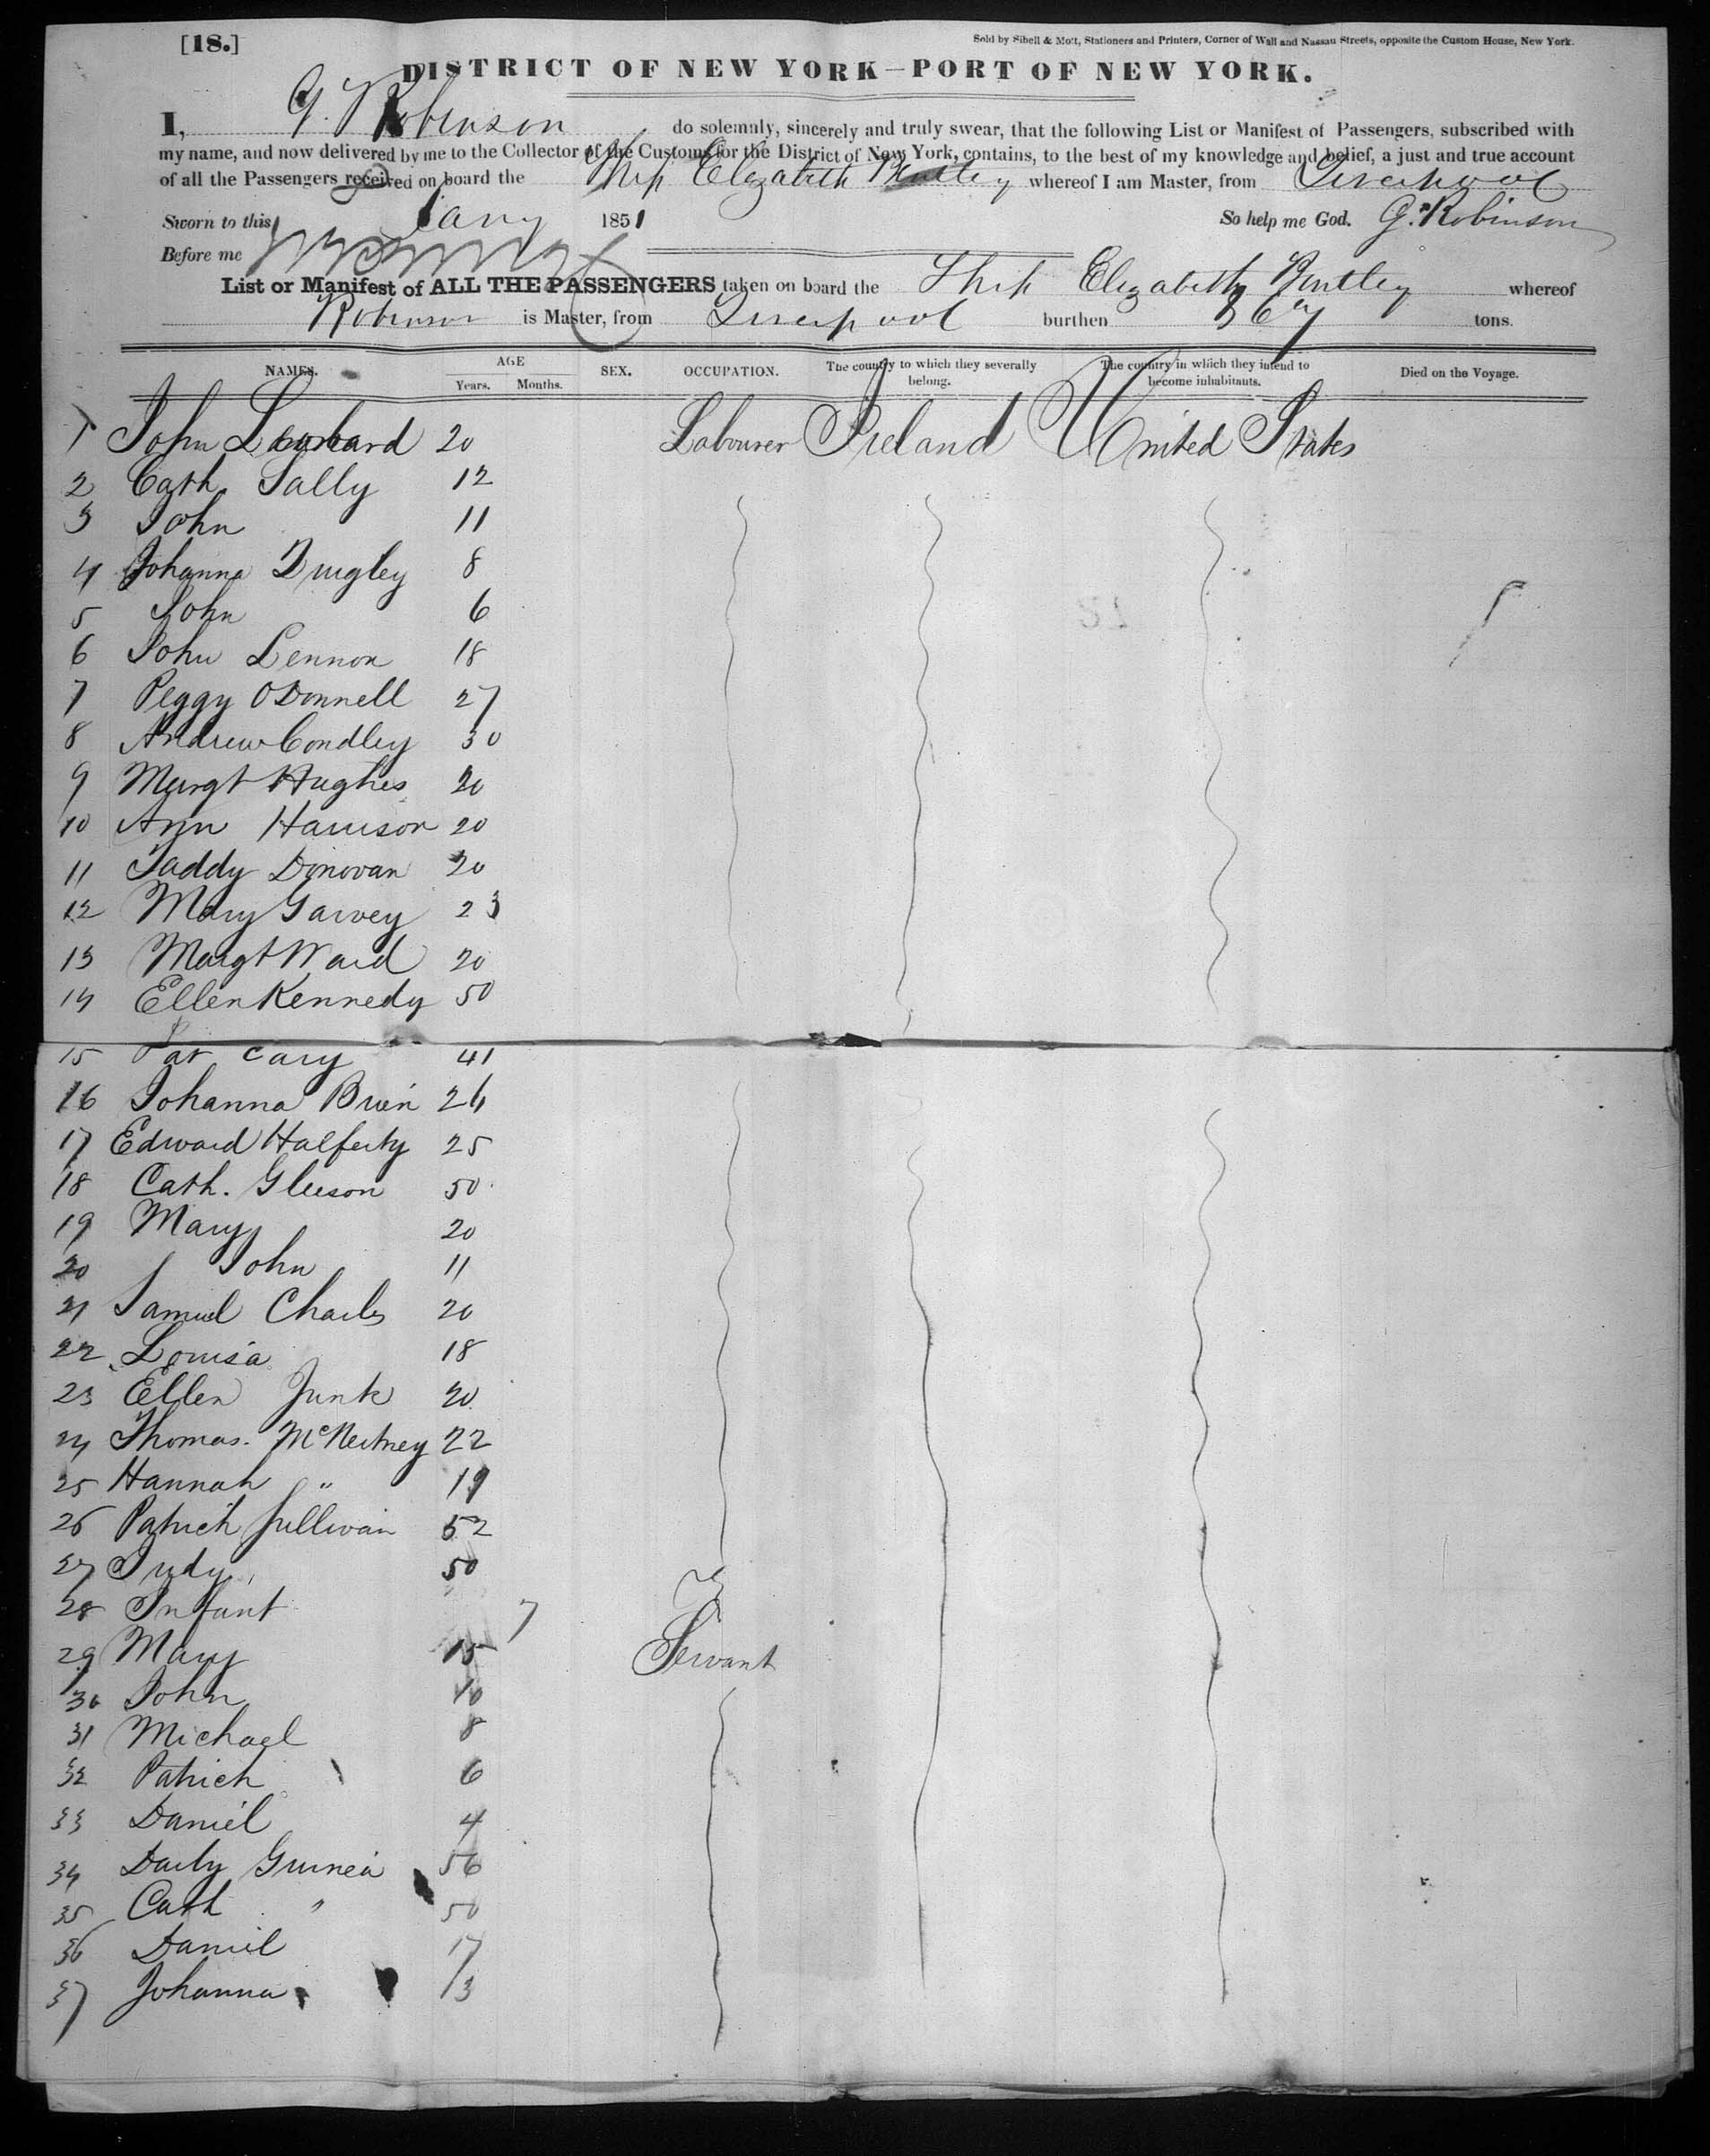 [18.]
Sold by Sibell & Mott, Stationers and Printers, Corner of Wall and Nassau Streets, opposite the Custom House, New York.
DISTRICT OF NEW YORK—PORT OF NEW YORK.
I, G. Robinson do solemnly, sincerely and truly swear, that the following List or Manifest of Passengers, subscribed with
my name, and now delivered by me to the Collector of the Customs for the District of New York, contains, to the best of my knowledge and belief, a just and true account
of all the Passengers received on board the Ship Elizabeth Bentley whereof I am Master, from Liverpool
Sworn to this Jany 1851 So help me God. G. Robinson
Before me
List or Manifest of ALL THE PASSENGERS taken on board the Ship Elizabeth Bentley whereof
Robinson is Master, from Liverpool burthen tons.
NAMES. AGE Years. Months. SEX. OCCUPATION. The country to which they severally belong. The country in which they intend to become inhabitants. Died on the Voyage.
1 John Lombard 20 Labourer Ireland United States
2 Cath. Sally 12
3 John 11
4 Johanna Quigley 8
5 John 6
6 John Lennon 18
7 Peggy O'Donnell 27
8 Andrew Condley 30
9 Margt Hughes 20
10 Ann Harrison 20
11 Taddy Donovan 20
12 Mary Garvey 23
13 Margt Ward 20
14 Ellen Kennedy 50
15 Pat Cary 41
16 Johanna Brien 24
17 Edward Halferty 25
18 Cath. Gleeson 50
19 Mary 20
20 John 11
21 Samuel Charles 20
22 Louisa 18
23 Ellen Junk 20
24 Thomas McNertney 22
25 Hannah " 19
26 Patrick Sullivan 52
27 Judy 50
28 Infant 7
29 Mary 15 Servant
30 John 10
31 Michael 8
32 Patrick 6
33 Daniel 4
34 Darby Guinea 56
35 Cath " 50
36 Daniel 17
37 Johanna 13